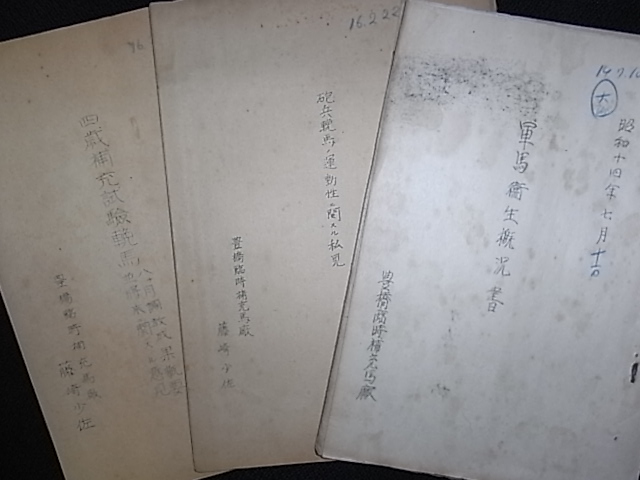 14.7.10
大
昭和十四年七月十日
軍馬衛生概況書
豊橋臨時補充馬廠
16.2.22
砲兵輓馬ノ運動性ニ関スル私見
豊橋臨時補充馬廠
藤崎少佐
四歳補充試験輓馬
豊橋臨時補充馬廠 藤崎少佐